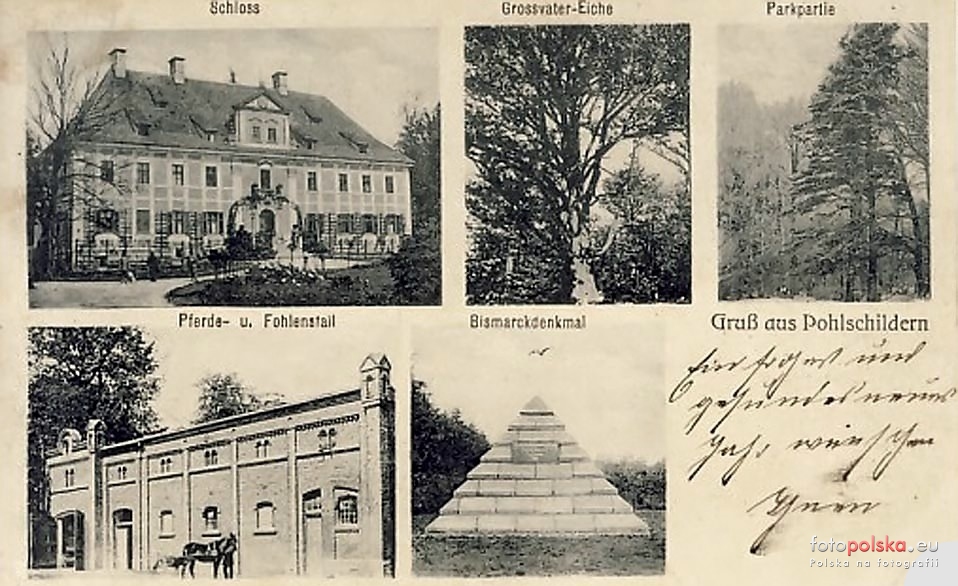 Schloss
Grossvater-Eiche
Parkpartie
Pferde- u. Fohlenstall
Bismarckdenkmal
Gruß aus Pohlschildern
Ein frohes und
gesundes neues
Jahr wünschen
Ihnen
fotopolska.eu
Polska na fotografii